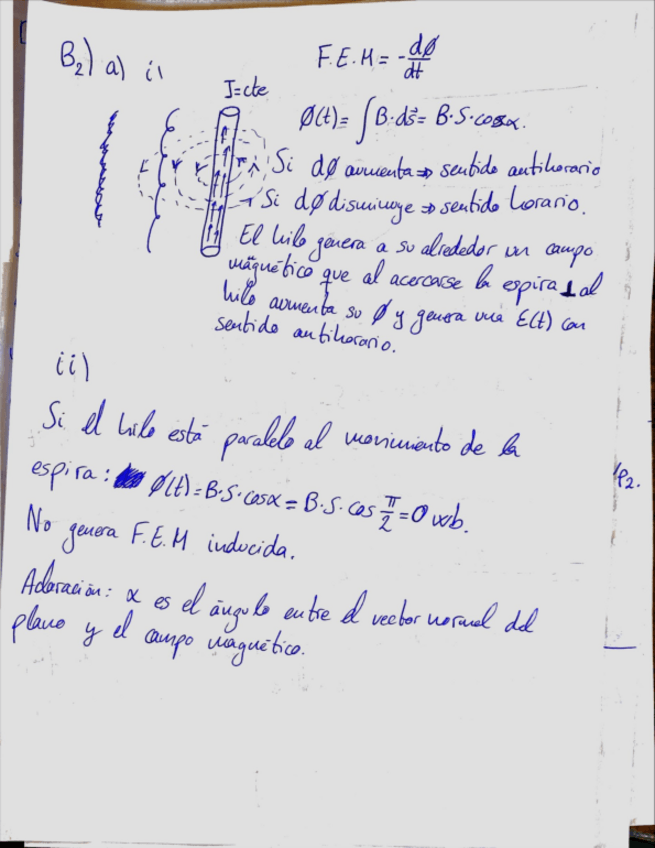 B₂) a) i)
F.E.M = -dϕ/dt
I=cte
ϕ(t)= ∫B·ds⃗= B·S·cosα.
Si dϕ aumenta ⇒ sentido antihorario
Si dϕ disminuye ⇒ sentido horario.
El hilo genera a su alrededor un campo
magnético que al acercarse la espira ⊥ al
hilo aumenta su ϕ y genera una ε(t) con
sentido antihorario.
ii)
Si el hilo está paralelo al movimiento de la
espira: ϕ(t)=B·S·cosα=B·S·cos π/2=0 wb.
No genera F.E.M inducida.
Aclaración: α es el ángulo entre el vector normal del
plano y el campo magnético.